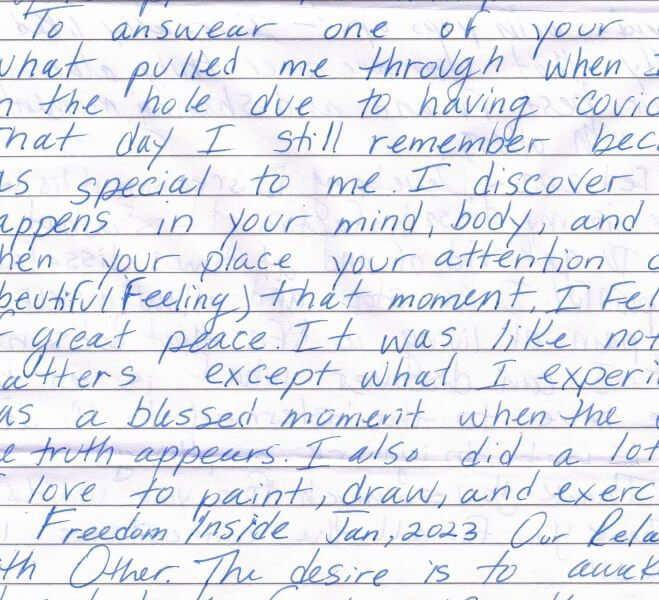 To answear one of your
what pulled me through when I
n the hole due to having covid
That day I still remember bec
as special to me. I discover
appens in your mind, body, and
hen your place your attention
beutiful Feeling) that moment. I Fel
great peace. It was like not
atters except what I experi
as a blessed moment when the
e truth appears. I also did a lot
I love to paint, draw, and exerc
Freedom Inside Jan, 2023 Our Rela
th Other. The desire is to awak